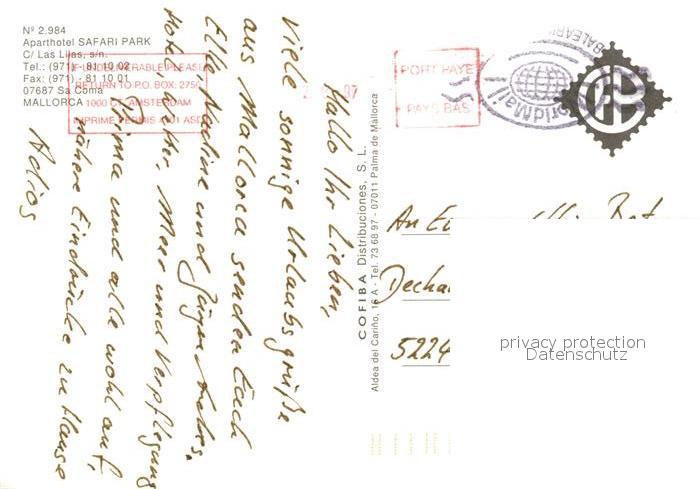 Nº 2.984
Aparthotel SAFARI PARK
C/ Las Lilas, s/n.
Tel.: (971) - 81 10 02
Fax: (971) - 81 10 01
07687 Sa Coma
MALLORCA
IF UNDELIVERABLE PLEASE
RETURN TO P.O. BOX: 2750
1000 CT. AMSTERDAM
PORT PAYE
PAYS BAS
Hallo Ihr Lieben,
viele sonnige Urlaubsgrüße
aus Mallorca senden Euch
Elke, Nadine und Jürgen
Hotel, Meer und Verpflegung
prima und alle wohl auf,
nähere Eindrücke zu Hause
Adios
COFIBA Distribuciones, S. L.
Aldea del Cariño, 16 A - Tel. 73 68 97 - 07011 Palma de Mallorca
An
5224
privacy protection
Datenschutz